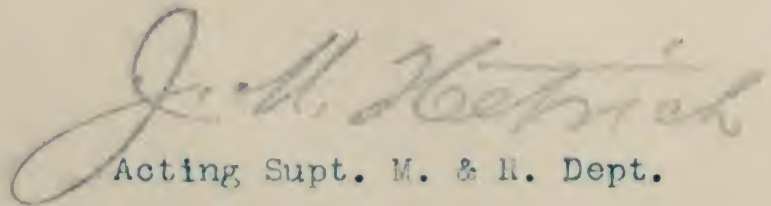 J. M. Hetrich
Acting Supt. M. & H. Dept.